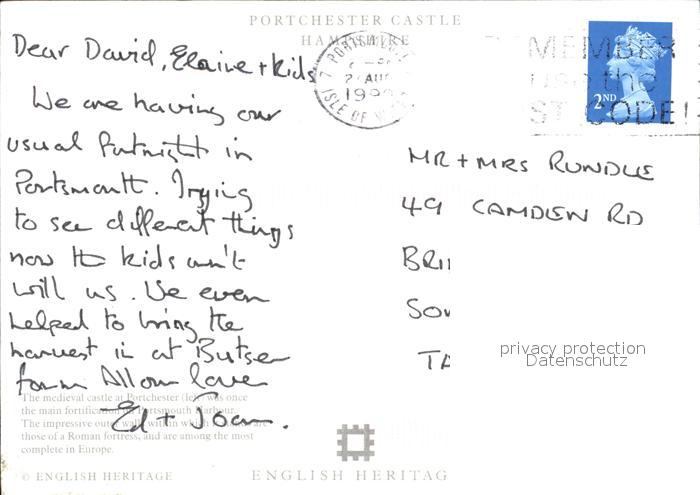 PORTCHESTER CASTLE
HAMPSHIRE
Dear David, Elaine + kids
We are having our
usual fortnight in
Portsmouth. Trying
to see different things
now the kids arn't
with us. We even
helped to bring the
harvest in at Butser
farm All our love
Ed + Joan.
PORTSMOUTH
AUG
199
ISLE OF W
REMEMBER
use the
POST CODE!
2ND
MR + MRS RUNDLE
49 CAMDEN RD
BRI
SO
TA
privacy protection
Datenschutz
The medieval castle at Portchester (left) was once
the main fortification in Portsmouth Harbour.
The impressive outer walls, within which it stands are
those of a Roman fortress, and are among the most
complete in Europe.
© ENGLISH HERITAGE
ENGLISH HERITAG